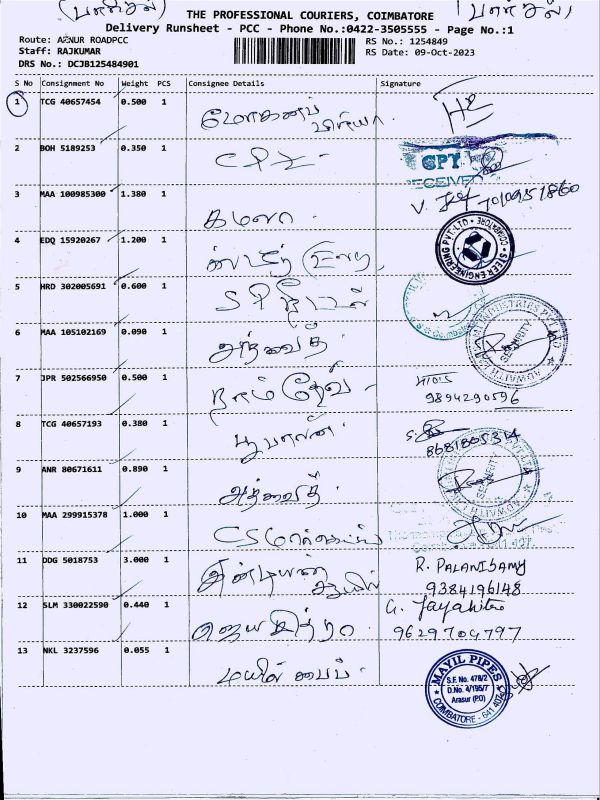 (பள்ளிகல்)
(பள்ளிகல்)
THE PROFESSIONAL COURIERS, COIMBATORE
Delivery Runsheet - PCC - Phone No.:0422-3505555 - Page No.:1
Route: ARNUR ROADPCC
RS No.: 1254849
Staff: RAJKUMAR
RS Date: 09-Oct-2023
DRS No.: DCJB125484901
S No Consignment No Weight PCS Consignee Details Signature
1 TCG 40657454 0.500 1 மோகனப்
பிரியா.
2 BOH 5189253 0.350 1 CPF -
GPY
RECEIVED
3 MAA 100985300 1.380 1 கமலா.
V. 7010951860
4 EDQ 15920267 1.200 1
STEER ENGINEERING PVT.LTD COIMBATORE
5 HRD 302005691 0.600 1
6 MAA 105102169 0.090 1 அத்வைத்
ADWAITH INDUSTRIES PVT LTD SECURITY
7 JPR 502566950 0.500 1 நாம்தேவ் -
9894290596
8 TCG 40657193 0.380 1 பூபாலன்.
8681805314
9 ANR 80671611 0.890 1 அத்வைதி
SECURITY
10 MAA 299915378 1.000 1 CS மார்க்கெட்டிங்
11 DDG 5018753 3.000 1 இண்டியன்
ஆயில்
R. PALANISAMY
9384196148
12 SLM 330022590 0.440 1 ஜெயசித்ரா
G. Jayachitra
9629704797
13 NKL 3237596 0.055 1 மயில் பைப்.
MAYIL PIPES
S.F. No. 478/2
D.No. 4/195/7
Arasur (P.O)
COIMBATORE - 641 407